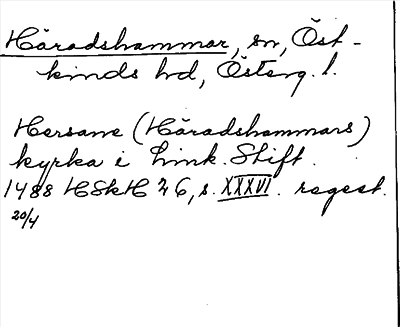 Häradshammar, sn, Öst-
kinds hd, Österg. l.
Hersane (Häradshammars)
kyrka i Link. Stift.
1488 HSkH 26, s. XXXVI. regest.
20/4